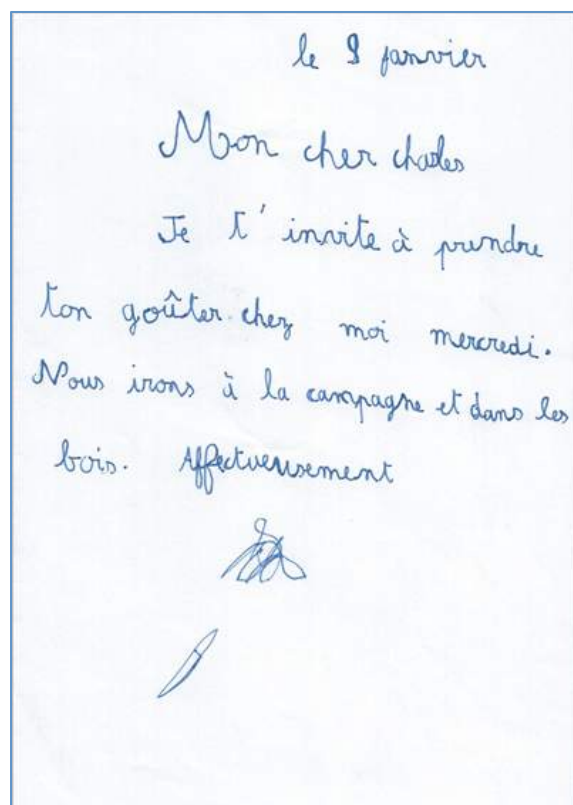 le 9 janvier
Mon cher charles
Je t' invite à prendre
ton goûter chez moi mercredi.
Nous irons à la campagne et dans les
bois. Affectueusement